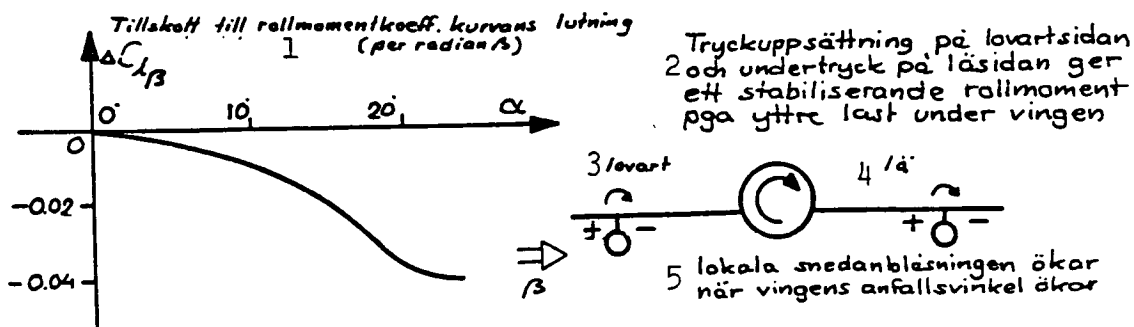 Tillskott till rollmomentkoeff. kurvans lutning
1 (per radian β)
ΔClβ
0° 10° 20° α
0
-0.02
-0.04
Tryckuppsättning på lovartsidan
2 och undertryck på läsidan ger
ett stabiliserande rollmoment
pga yttre last under vingen
3 lovart
4 lä
+ - + -
β
5 lokala snedanblåsningen ökar
när vingens anfallsvinkel ökar